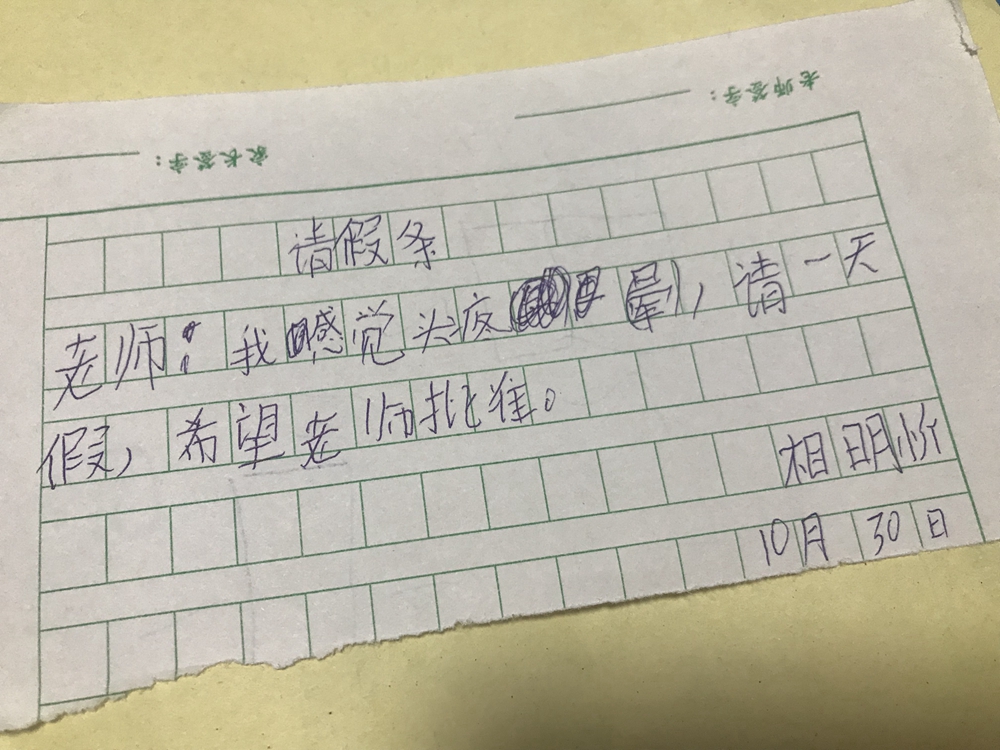 老师签字：
家长签字：
请假条
老师：我感觉头疼晕，请一天
假，希望老师批准。
相明
10月30日